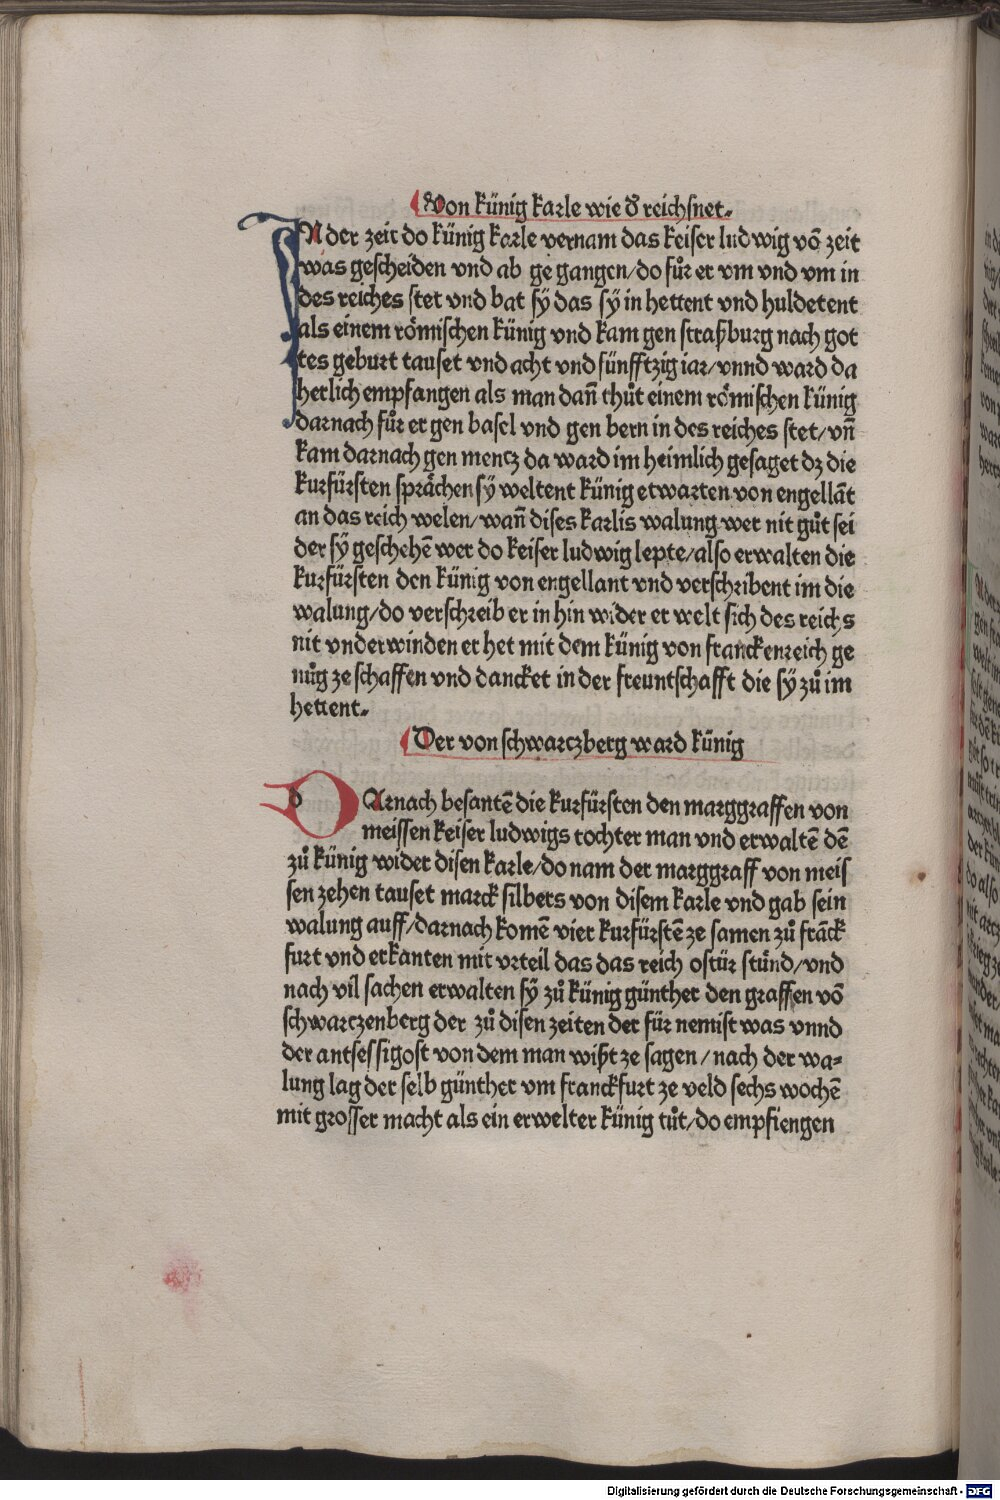 Von künig karle wie d᷑ reichsnet.
IN der zeit do künig karle vernam das keiser ludwig vō zeit
was gescheiden vnd ab ge gangen/do fůr er vm vnd vm in
des reiches stet vnd bat sÿ das sÿ in hettent vnd huldetent
als einem römischen künig vnd kam gen straßburg nach got
tes geburt tauset vnd acht vnd fünfftzig iar/vnnd ward da
herlich empfangen als man dañ thůt einem römischen künig
darnach fůr er gen basel vnd gen bern in des reiches stet/vñ
kam darnach gen mencz da ward im heimlich gesaget dz die
kurfürsten sprächen sÿ weltent künig etwarten von engellāt
an das reich welen/wañ dises karlis walung wer nit gůt sei
der sÿ geschehē wer do keiser ludwig lepte/also erwalten die
kurfürsten den künig von engellant vnd verschribent im die
walung/do verschreib er in hin wider er welt sich des reichs
nit vnderwinden er het mit dem künig von franckenreich ge
nůg ze schaffen vnd dancket in der freuntschafft die sÿ zů im
hettent.
Der von schwarczberg ward künig
d DArnach besantē die kurfürsten den marggraffen von
meissen keiser ludwigs tochter man vnd erwaltē dē
zů künig wider disen karle/do nam der marggraff von meis
sen zehen tauset marck silbers von disem karle vnd gab sein
walung auff/darnach komē vier kurfürstē ze samen zů frāck
furt vnd erkanten mit vrteil das das reich ostür stünd/vnd
nach vil sachen erwalten sÿ zů künig günther den graffen vō
schwarczenberg der zů disen zeiten der für nemist was vnnd
der antsessigost von dem man wißt ze sagen/nach der wa-
lung lag der selb günther vm franckfurt ze veld sechs wochē
mit grosser macht als ein erwelter künig tůt/do empfiengen
Digitalisierung gefördert durch die Deutsche Forschungsgemeinschaft - DFG